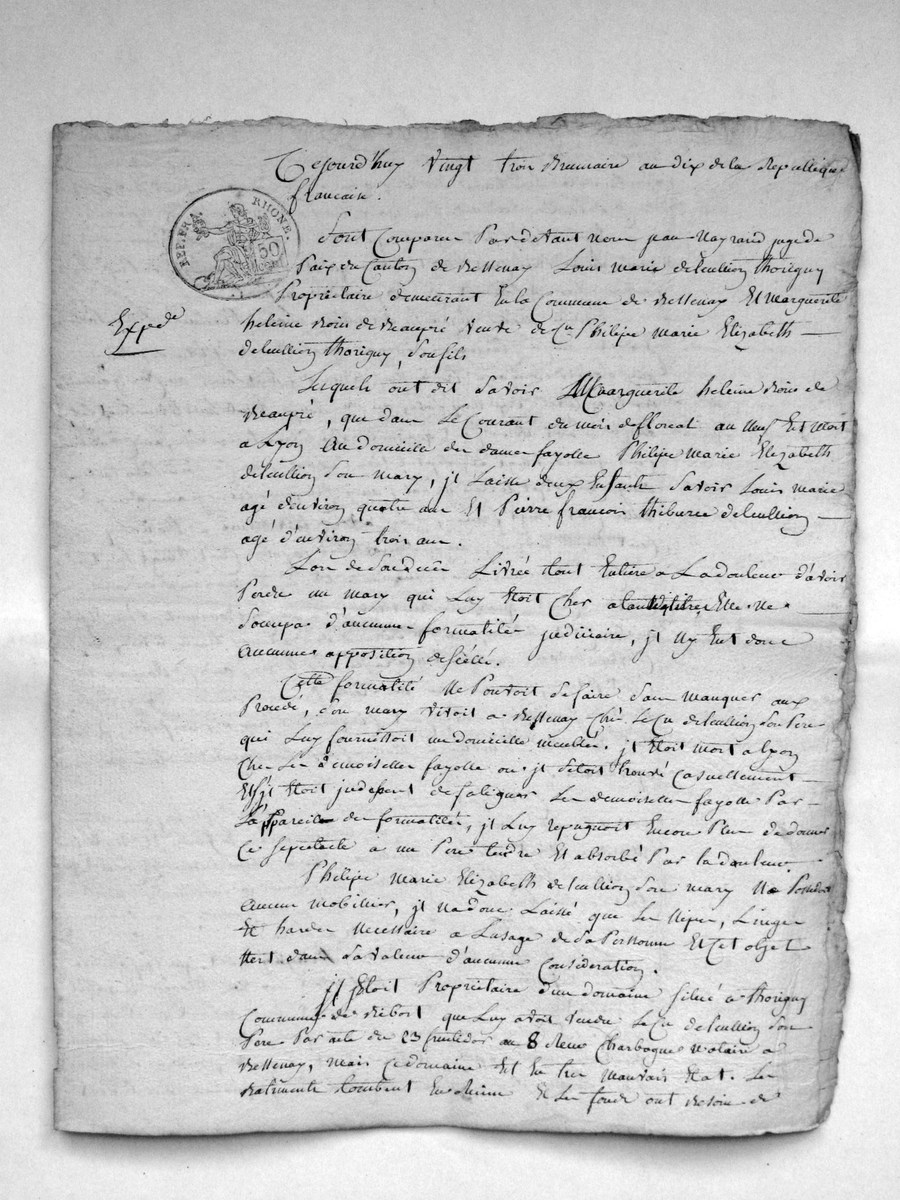 Cejourd'huy vingt trois Brumaire an dix de la Republique
francaise.
REP. FRA. RHONE.
50
Sont Comparu Pardevant nous jean Mayrand juge de
Paix du Canton de Bessenay Louis marie deleullion thorigny
Propriétaire demeurant En la Commune de Bessenay Et marguerite
Expede
heleine Bois de Beaupré veuve de Cn Philipe marie Elizabeth
deleullion thorigny, son fils
Lesquels ont dit savoir Marguerite heleine Bois de
Beaupré, que dans Le Courant du mois defloreal an neuf Est mort
a Lyon Au domicile des dames fayolle Philipe marie Elizabeth
deleullion son mary, jl Laisse deux Enfants savoir Louis marie
agé d'environ quatre ans Et Pierre francois thiburce deleullion
agé d'environ trois ans.
Lors de son deces Livrée tout Entiere a La douleur d'avoir
Perdu un mary qui Luy Etoit Cher a tant de titres Elle ne
s'ocupa d'aucunes formalités judiciaire, jl ny Eut donc
Aucunes apposition descéllé.
Cette formalité ne Pouvoit se faire sans manquer aux
Procedé, son mary vivoit a Bessenay Chés Le Cn deleullion son Pere
qui Luy fournissoit un domicile meublé. jl Etoit mort a Lyon
Chés Les demoiselles fayolle ou jl setoit trouvé Casuellement
Et jl Etoit judessent de fatiguer Les demoiselles fayolle Par
L'apareil des formalités, jl Luy repugnoit Encore Plus de donner
Ce sepectacle a un Pere tendre Et absorbé Par la douleur.
Philipe marie Elizabeth deleullion son mary ne Possedoit
Aucun mobillier, jl na donc Laissé que ses nipes, Linges
Et hardes necessaire a Lusage de sa Personne Et Cet objet
n'est dans sa valeur d'aucune Consideration.
jl Etoit Proprietaire d'un domaine situé a thorigny
Commune de Bibost que Luy avoit vendu Le Cn deleullion son
Pere Par acte du 23 fructidor an 8 Reçu Charbogne notaire a
Bessenay, mais ce domaine Est En tres mauvais Etat. Les
Batiments tombent En Ruine Et Les fonds ont Besoin de